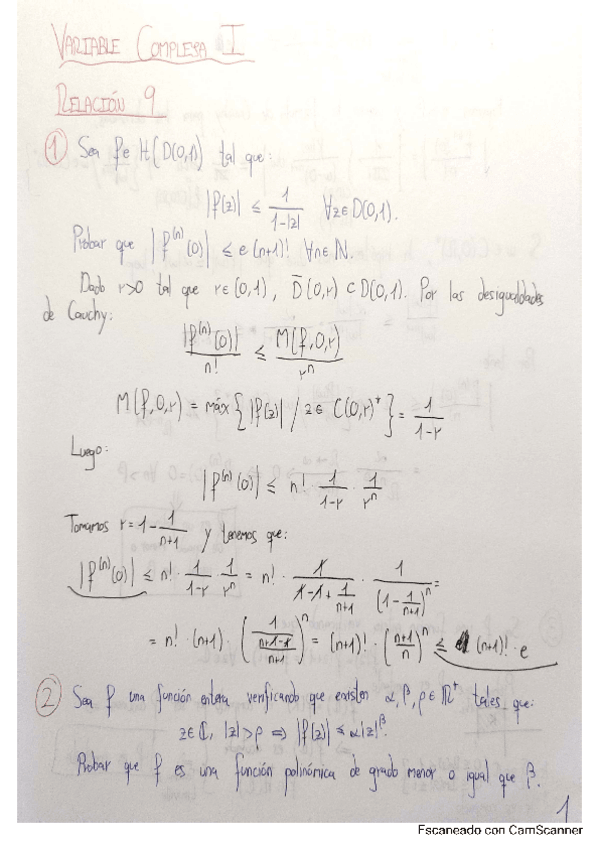 VARIABLE COMPLEJA I
RELACIÓN 9
① Sea f∈H(D(0,1) tal que:
|f(z)| ≤ 1/(1-|z|) ∀z∈D(0,1).
Probar que |f^(n)(0)| ≤ e(n+1)! ∀n∈ℕ.
Dado r>0 tal que r∈(0,1), D̄(0,r) ⊂ D(0,1). Por las desigualdades
de Cauchy:
|f^(n)(0)|/n! ≤ M(f,0,r)/r^n
M(f,0,r) = máx{|f(z)| / z∈ C(0,r)^*} = 1/(1-r)
Luego:
|f^(n)(0)| ≤ n! · 1/(1-r) · 1/r^n
Tomamos r = 1 - 1/(n+1) y tenemos que:
|f^(n)(0)| ≤ n! · 1/(1-r) · 1/r^n = n! · 1/(1-1+1/(n+1)) · 1/(1-1/(n+1))^n =
= n! · (n+1) · (1/((n+1-1)/(n+1)))^n = (n+1)! · ((n+1)/n)^n ≤ (n+1)! · e
② Sea f una función entera verificando que existen α, β, ρ ∈ ℝ⁺ tales que:
z∈ℂ, |z|>ρ ⇒ |f(z)| ≤ α|z|^β.
Probar que f es una función polinómica de grado menor o igual que β.
1
Escaneado con CamScanner